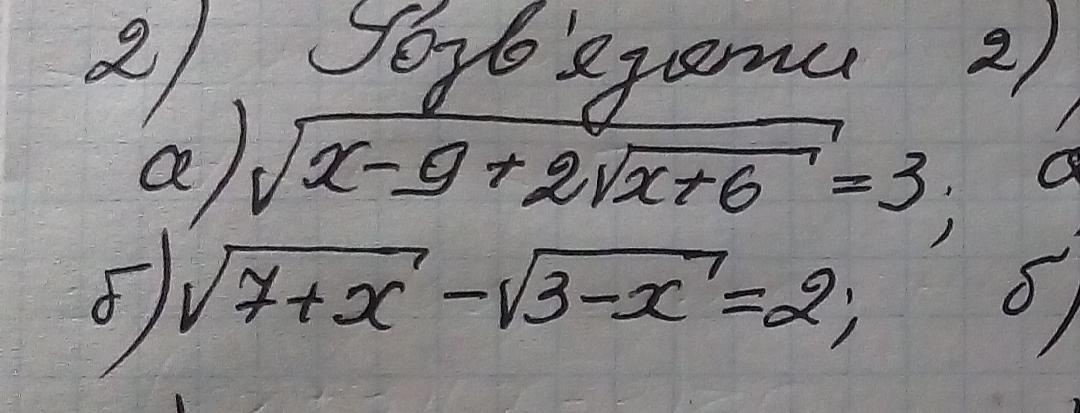 2) Розв'язати 2)
а) √(x-9+2√(x+6)) = 3;
б) √(7+x) - √(3-x) = 2; б)